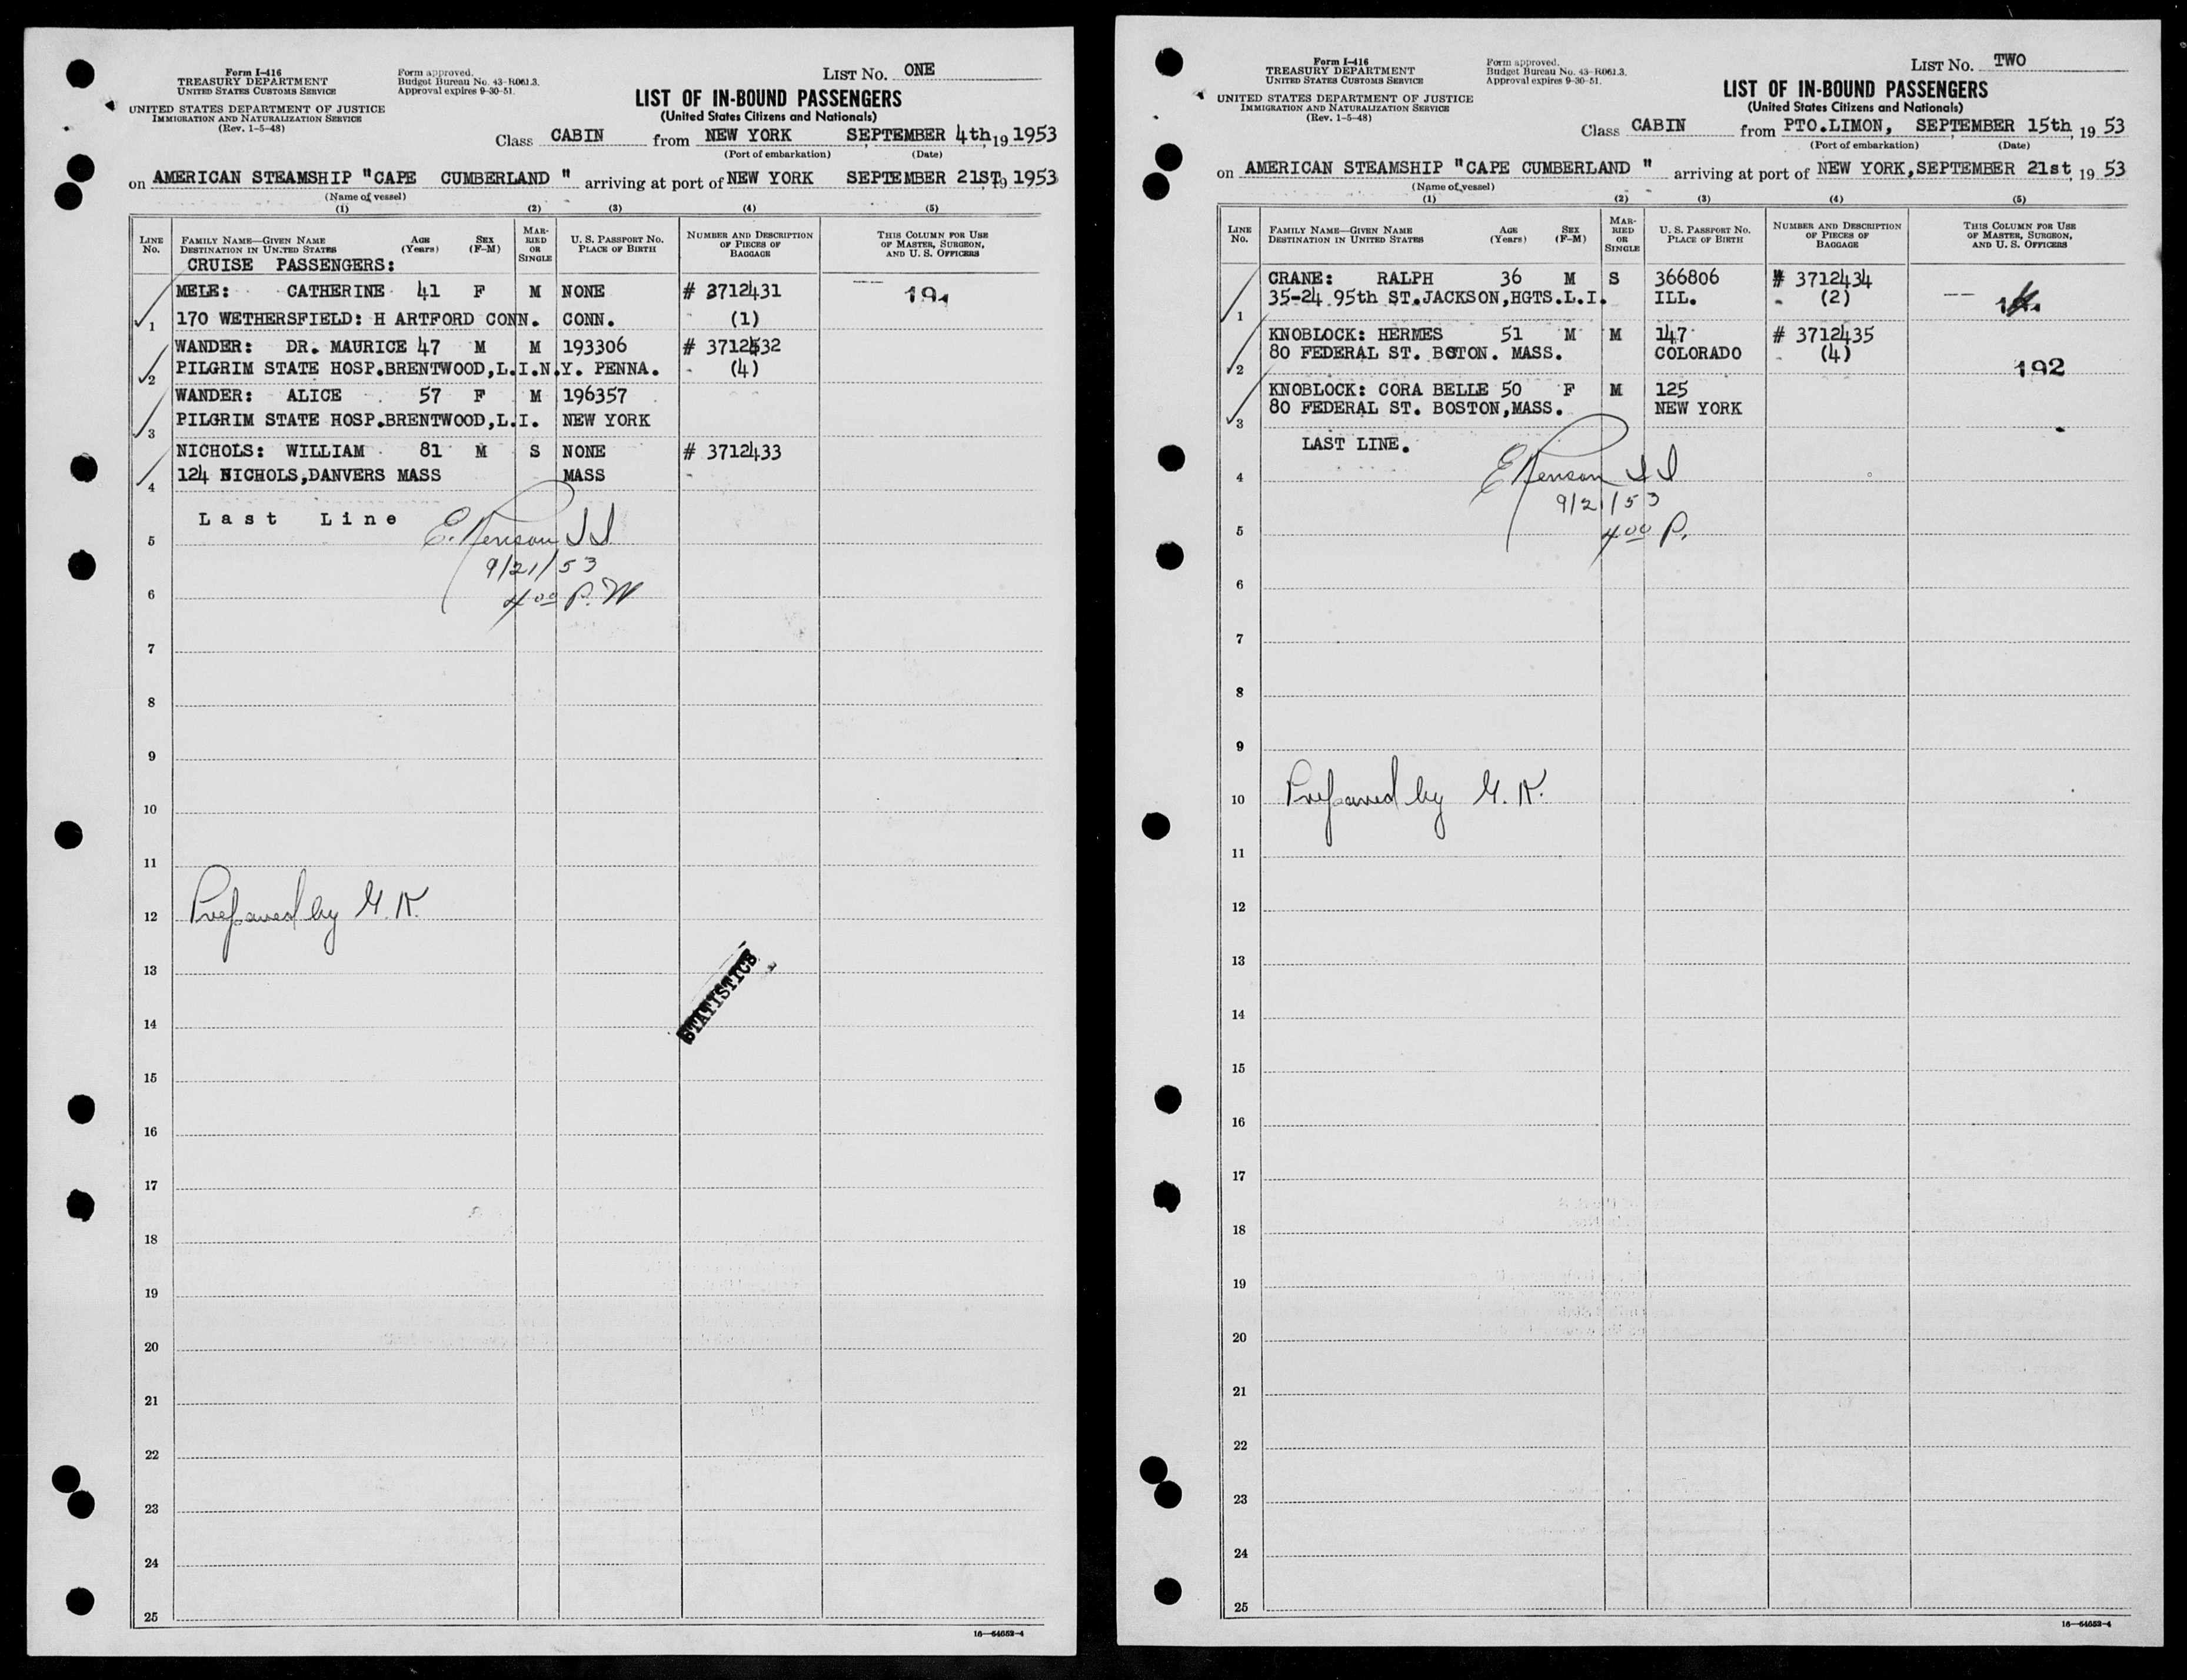 Form I-416
TREASURY DEPARTMENT
UNITED STATES CUSTOMS SERVICE
UNITED STATES DEPARTMENT OF JUSTICE
IMMIGRATION AND NATURALIZATION SERVICE
(Rev. 1-5-48)
Form approved.
Budget Bureau No. 43-R061.3.
Approval expires 9-30-51.
LIST No. ONE
LIST OF IN-BOUND PASSENGERS
(United States Citizens and Nationals)
Class CABIN from NEW YORK SEPTEMBER 4th, 19 1953
(Port of embarkation) (Date)
on AMERICAN STEAMSHIP "CAPE CUMBERLAND " arriving at port of NEW YORK SEPTEMBER 21ST, 19 1953
(Name of vessel)
(1) (2) (3) (4) (5)
LINE No. FAMILY NAME—GIVEN NAME DESTINATION IN UNITED STATES AGE (Years) SEX (F-M) MARRIED OR SINGLE U. S. PASSPORT NO. PLACE OF BIRTH NUMBER AND DESCRIPTION OF PIECES OF BAGGAGE THIS COLUMN FOR USE OF MASTER, SURGEON, AND U. S. OFFICERS
CRUISE PASSENGERS:
MELE: CATHERINE 41 F M NONE # 3712431
1 170 WETHERSFIELD: H ARTFORD CONN. CONN. (1)
WANDER: DR. MAURICE 47 M M 193306 # 3712432
2 PILGRIM STATE HOSP.BRENTWOOD,L.I.N.Y. PENNA. (4)
WANDER: ALICE 57 F M 196357
3 PILGRIM STATE HOSP.BRENTWOOD,L.I. NEW YORK
NICHOLS: WILLIAM 81 M S NONE # 3712433
4 124 NICHOLS,DANVERS MASS MASS
Last Line
5
9/21/53
6
4 00 P.M
7
8
9
10
11
12 Prepared by
13
STATISTICS
14
15
16
17
18
19
20
21
22
23
24
25
16—54652-4
Form I-416
TREASURY DEPARTMENT
UNITED STATES CUSTOMS SERVICE
UNITED STATES DEPARTMENT OF JUSTICE
IMMIGRATION AND NATURALIZATION SERVICE
(Rev. 1-5-48)
Form approved.
Budget Bureau No. 43-R061.3.
Approval expires 9-30-51.
LIST No. TWO
LIST OF IN-BOUND PASSENGERS
(United States Citizens and Nationals)
Class CABIN from PTO.LIMON, SEPTEMBER 15th, 19 53
(Port of embarkation) (Date)
on AMERICAN STEAMSHIP "CAPE CUMBERLAND " arriving at port of NEW YORK, SEPTEMBER 21st, 19 53
(Name of vessel)
(1) (2) (3) (4) (5)
LINE No. FAMILY NAME—GIVEN NAME DESTINATION IN UNITED STATES AGE (Years) SEX (F-M) MARRIED OR SINGLE U. S. PASSPORT NO. PLACE OF BIRTH NUMBER AND DESCRIPTION OF PIECES OF BAGGAGE THIS COLUMN FOR USE OF MASTER, SURGEON, AND U. S. OFFICERS
CRANE: RALPH 36 M S 366806 # 3712434
35-24 95th ST.JACKSON,HGTS.L.I. ILL. (2)
1
KNOBLOCK: HERMES 51 M M 147 # 3712435
80 FEDERAL ST. BOTON. MASS. COLORADO (4)
2 192
KNOBLOCK: CORA BELLE 50 F M 125
80 FEDERAL ST. BOSTON,MASS. NEW YORK
3
LAST LINE.
4
9/21/53
5
4 00 P.
6
7
8
9
10 Prepared by
11
12
13
14
15
16
17
18
19
20
21
22
23
24
25
16—54652-4